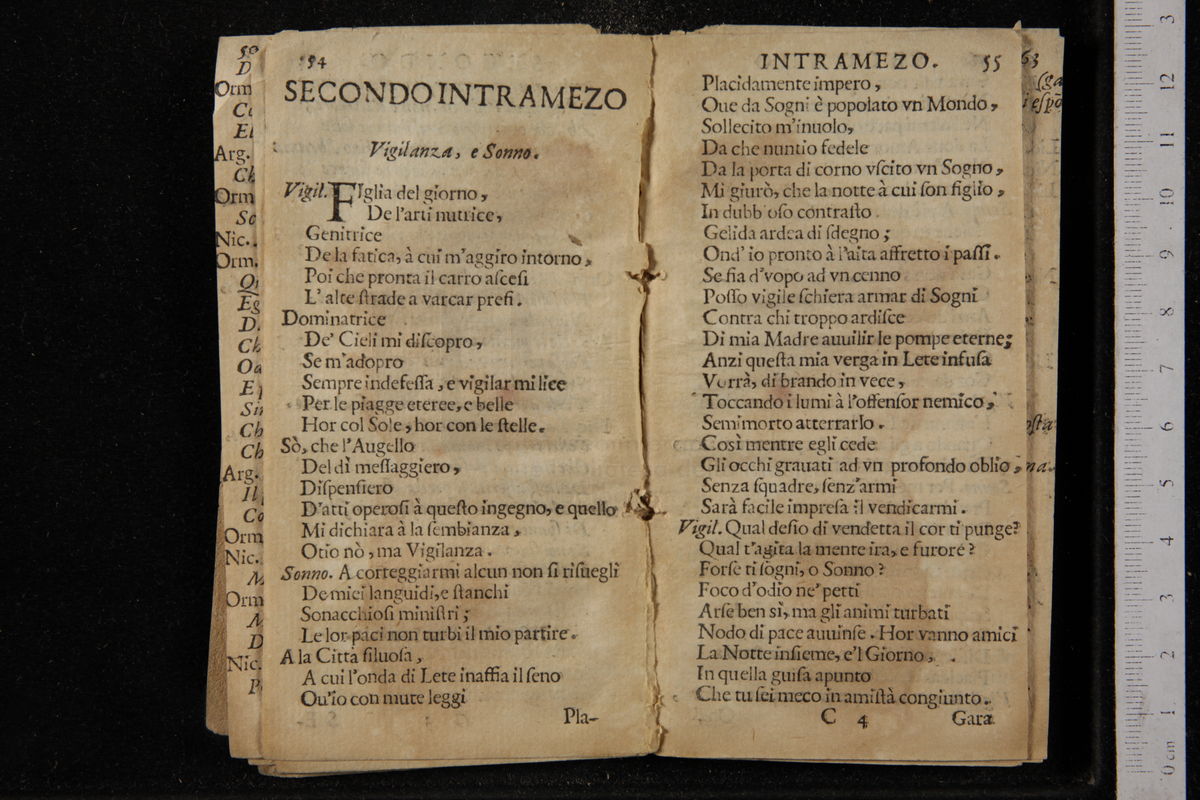 54
SECONDO INTRAMEZO
Vigilanza, e Sonno.
Vigil. FIglia del giorno,
De l'arti nutrice,
Genitrice
De la fatica, à cui m'aggiro intorno,
Poi che pronta il carro ascesi
L'alte strade a varcar presi.
Dominatrice
De' Cieli mi discopro,
Se m'adopro
Sempre indefessa, e vigilar mi lice
Per le piagge eteree, e belle
Hor col Sole, hor con le stelle.
Sò, che l'Augello
Del dì messaggiero,
Dispensiero
D'atti operosi à questo ingegno, e quello
Mi dichiara à la sembianza,
Otio nò, ma Vigilanza.
Sonno. A corteggiarmi alcun non si risuegli
De miei languidi, e stanchi
Sonacchiosi ministri;
Le lor paci non turbi il mio partire.
A la Città siluosa,
A cui l'onda di Lete inaffia il seno
Ou'io con mute leggi
Pla-
INTRAMEZO. 55
Placidamente impero,
Oue da Sogni è popolato vn Mondo,
Sollecito m'inuolo,
Da che nuntio fedele
Da la porta di corno vscito vn Sogno,
Mi giurò, che la notte à cui son figlio,
In dubb oso contrasto
Gelida ardea di sdegno;
Ond' io pronto à l'aita affretto i passi.
Se fia d'vopo ad vn cenno
Posso vigile schiera armar di Sogni
Contra chi troppo ardisce
Di mia Madre auuilir le pompe eterne;
Anzi questa mia verga in Lete infusa
Vorrà, di brando in vece,
Toccando i lumi à l'offensor nemico,
Semimorto atterrarlo.
Così mentre egli cede
Gli occhi grauati ad vn profondo oblio,
Senza squadre, senz'armi
Sarà facile impresa il vendicarmi.
Vigil. Qual desio di vendetta il cor ti punge?
Qual t'agita la mente ira, e furore?
Forse ti sogni, o Sonno?
Foco d'odio ne' petti
Arse ben sì, ma gli animi turbati
Nodo di pace auuinse. Hor vanno amici
La Notte insieme, e'l Giorno,
In quella guisa apunto
Che tu sei meco in amistà congiunto.
C 4 Gara
50
D
Orm
El
Arg.
Ch
Orm
So
Nic.
Orm.
Eg
D.
Ch
Si
Ch
Ch
Arg.
Il
Co
Orm
Nic.
M
Orm
M
D
Nic.
P
63
na.
0 cm 1 2 3 4 5 6 7 8 9 10 11 12 3